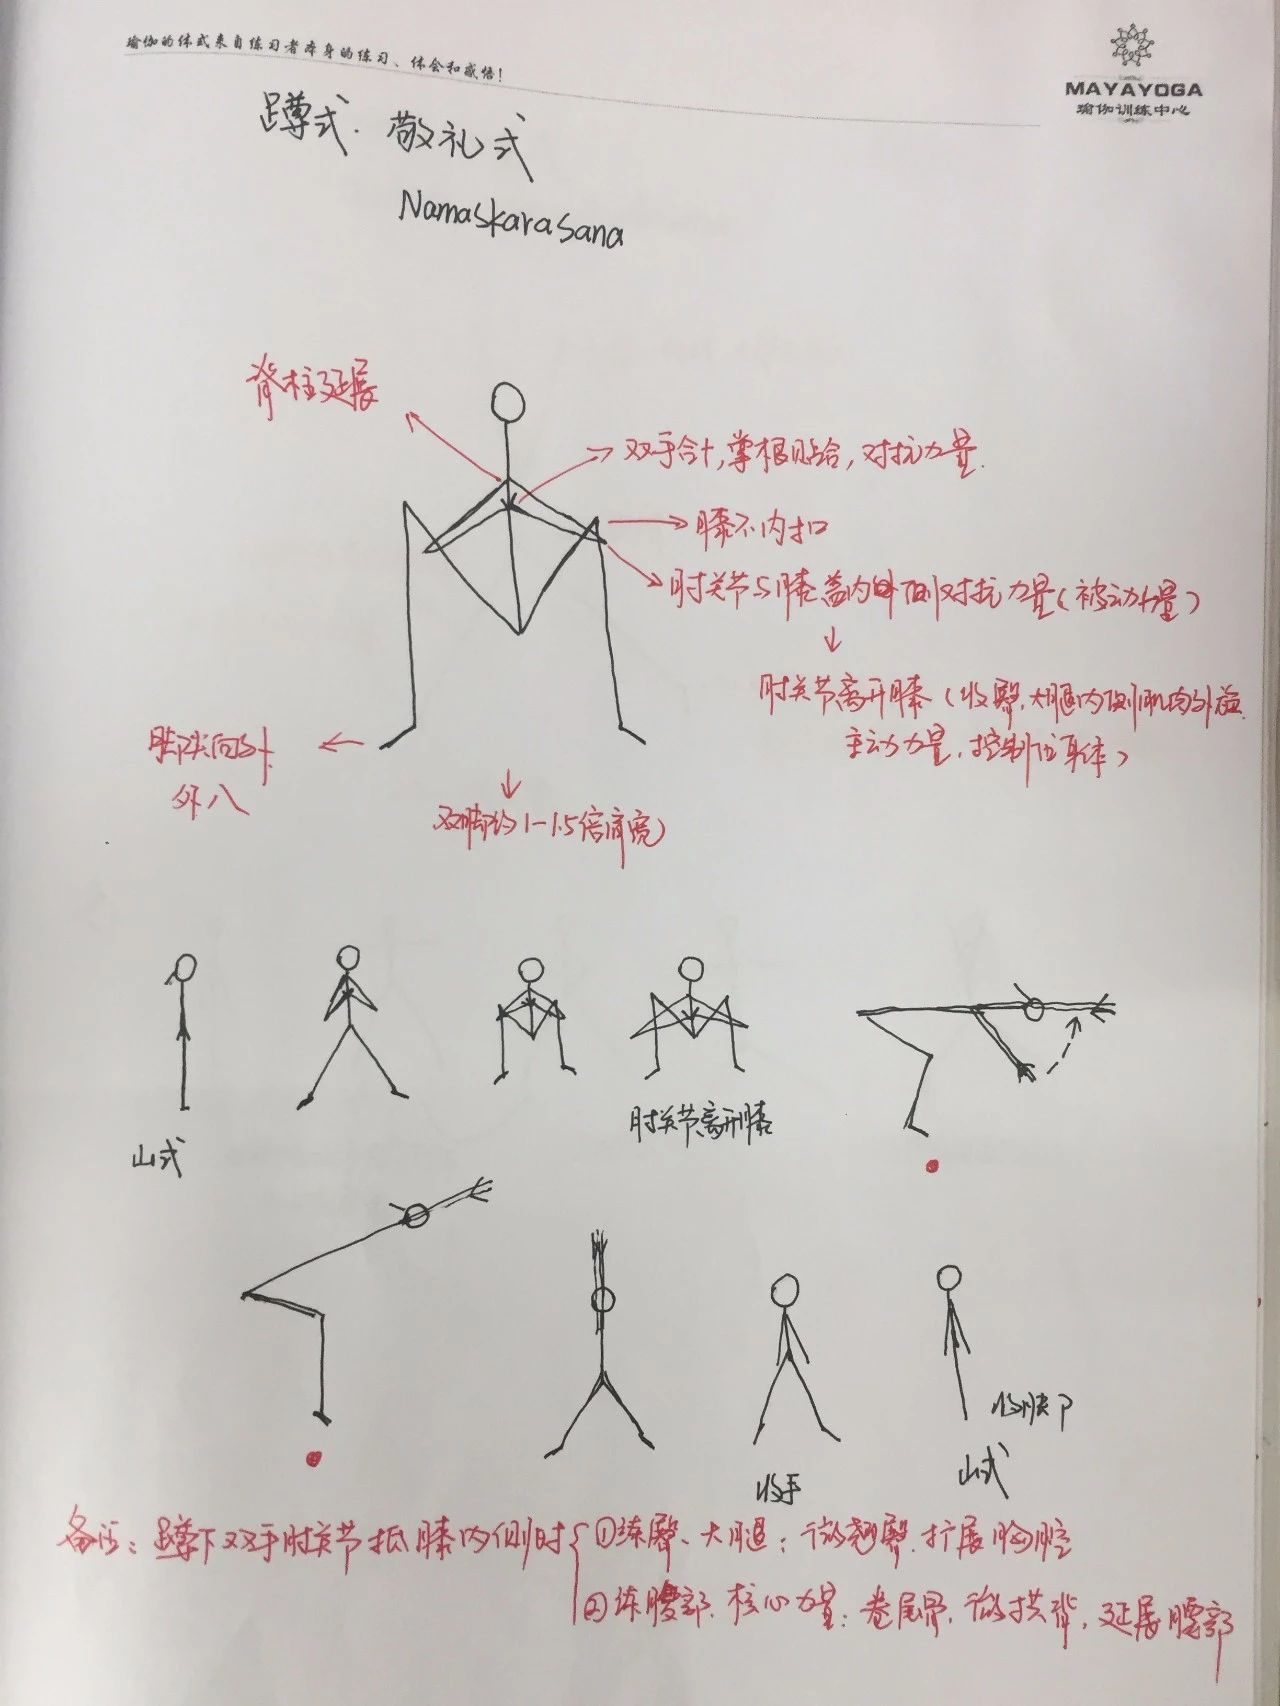 瑜伽的体式来自练习者本身的练习、体会和感悟!
MAYAYOGA
瑜伽训练中心
蹲式. 敬礼式
Namaskarasana
脊柱延展
双手合十,掌根贴合,对抗力量.
膝不内扣
肘关节与膝盖内侧对抗力量(被动力量)
↓
肘关节离开膝(收臀,大腿内侧肌肉外旋
主动力量,控制住身体)
脚尖向外
外八
双脚约1-1.5倍肩宽
山式
肘关节离开膝
收手
收脚
山式
备注: 蹲下双手肘关节抵膝内侧时
①练臀、大腿: 微翘臀.扩展胸腔
②练腰部.核心力量: 卷尾骨,微拱背,延展腰部